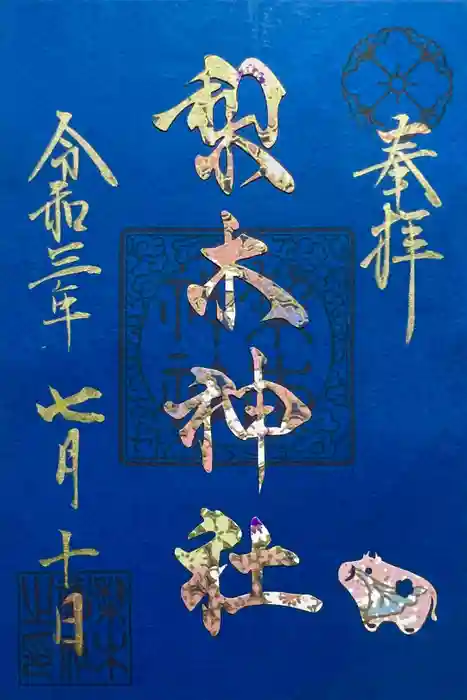 奉拝
梨木神社
令和三年 七月 十日